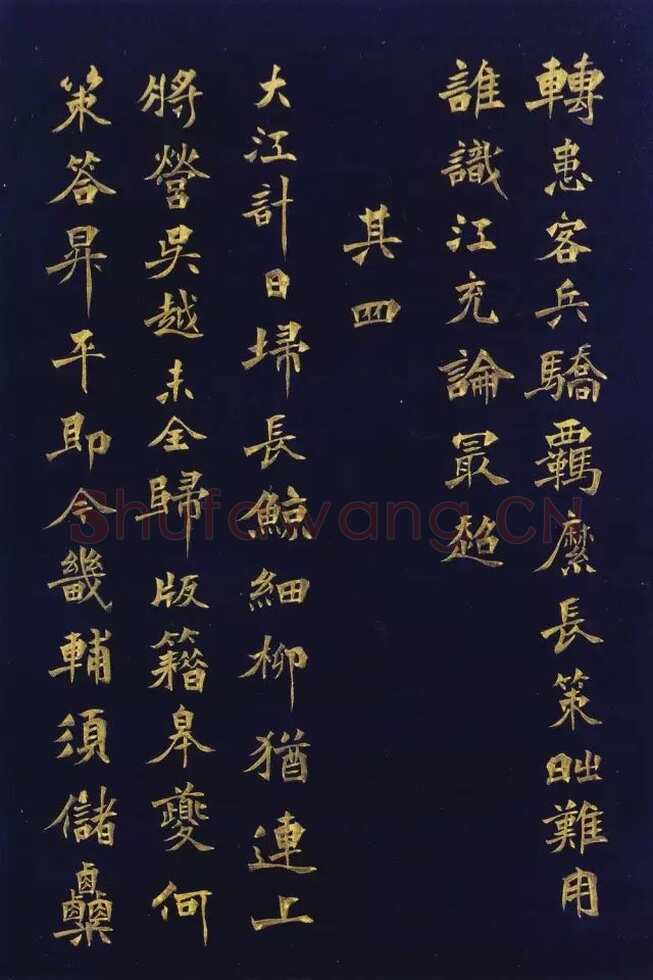 轉患客兵驕覊縻長策昢難用
誰識江充論冣超
其四
大江計日埽長鯨細柳猶連上
將營吳越未全歸版籍皋夔何
策答昇平即今畿輔須儲
Shufawang.CN